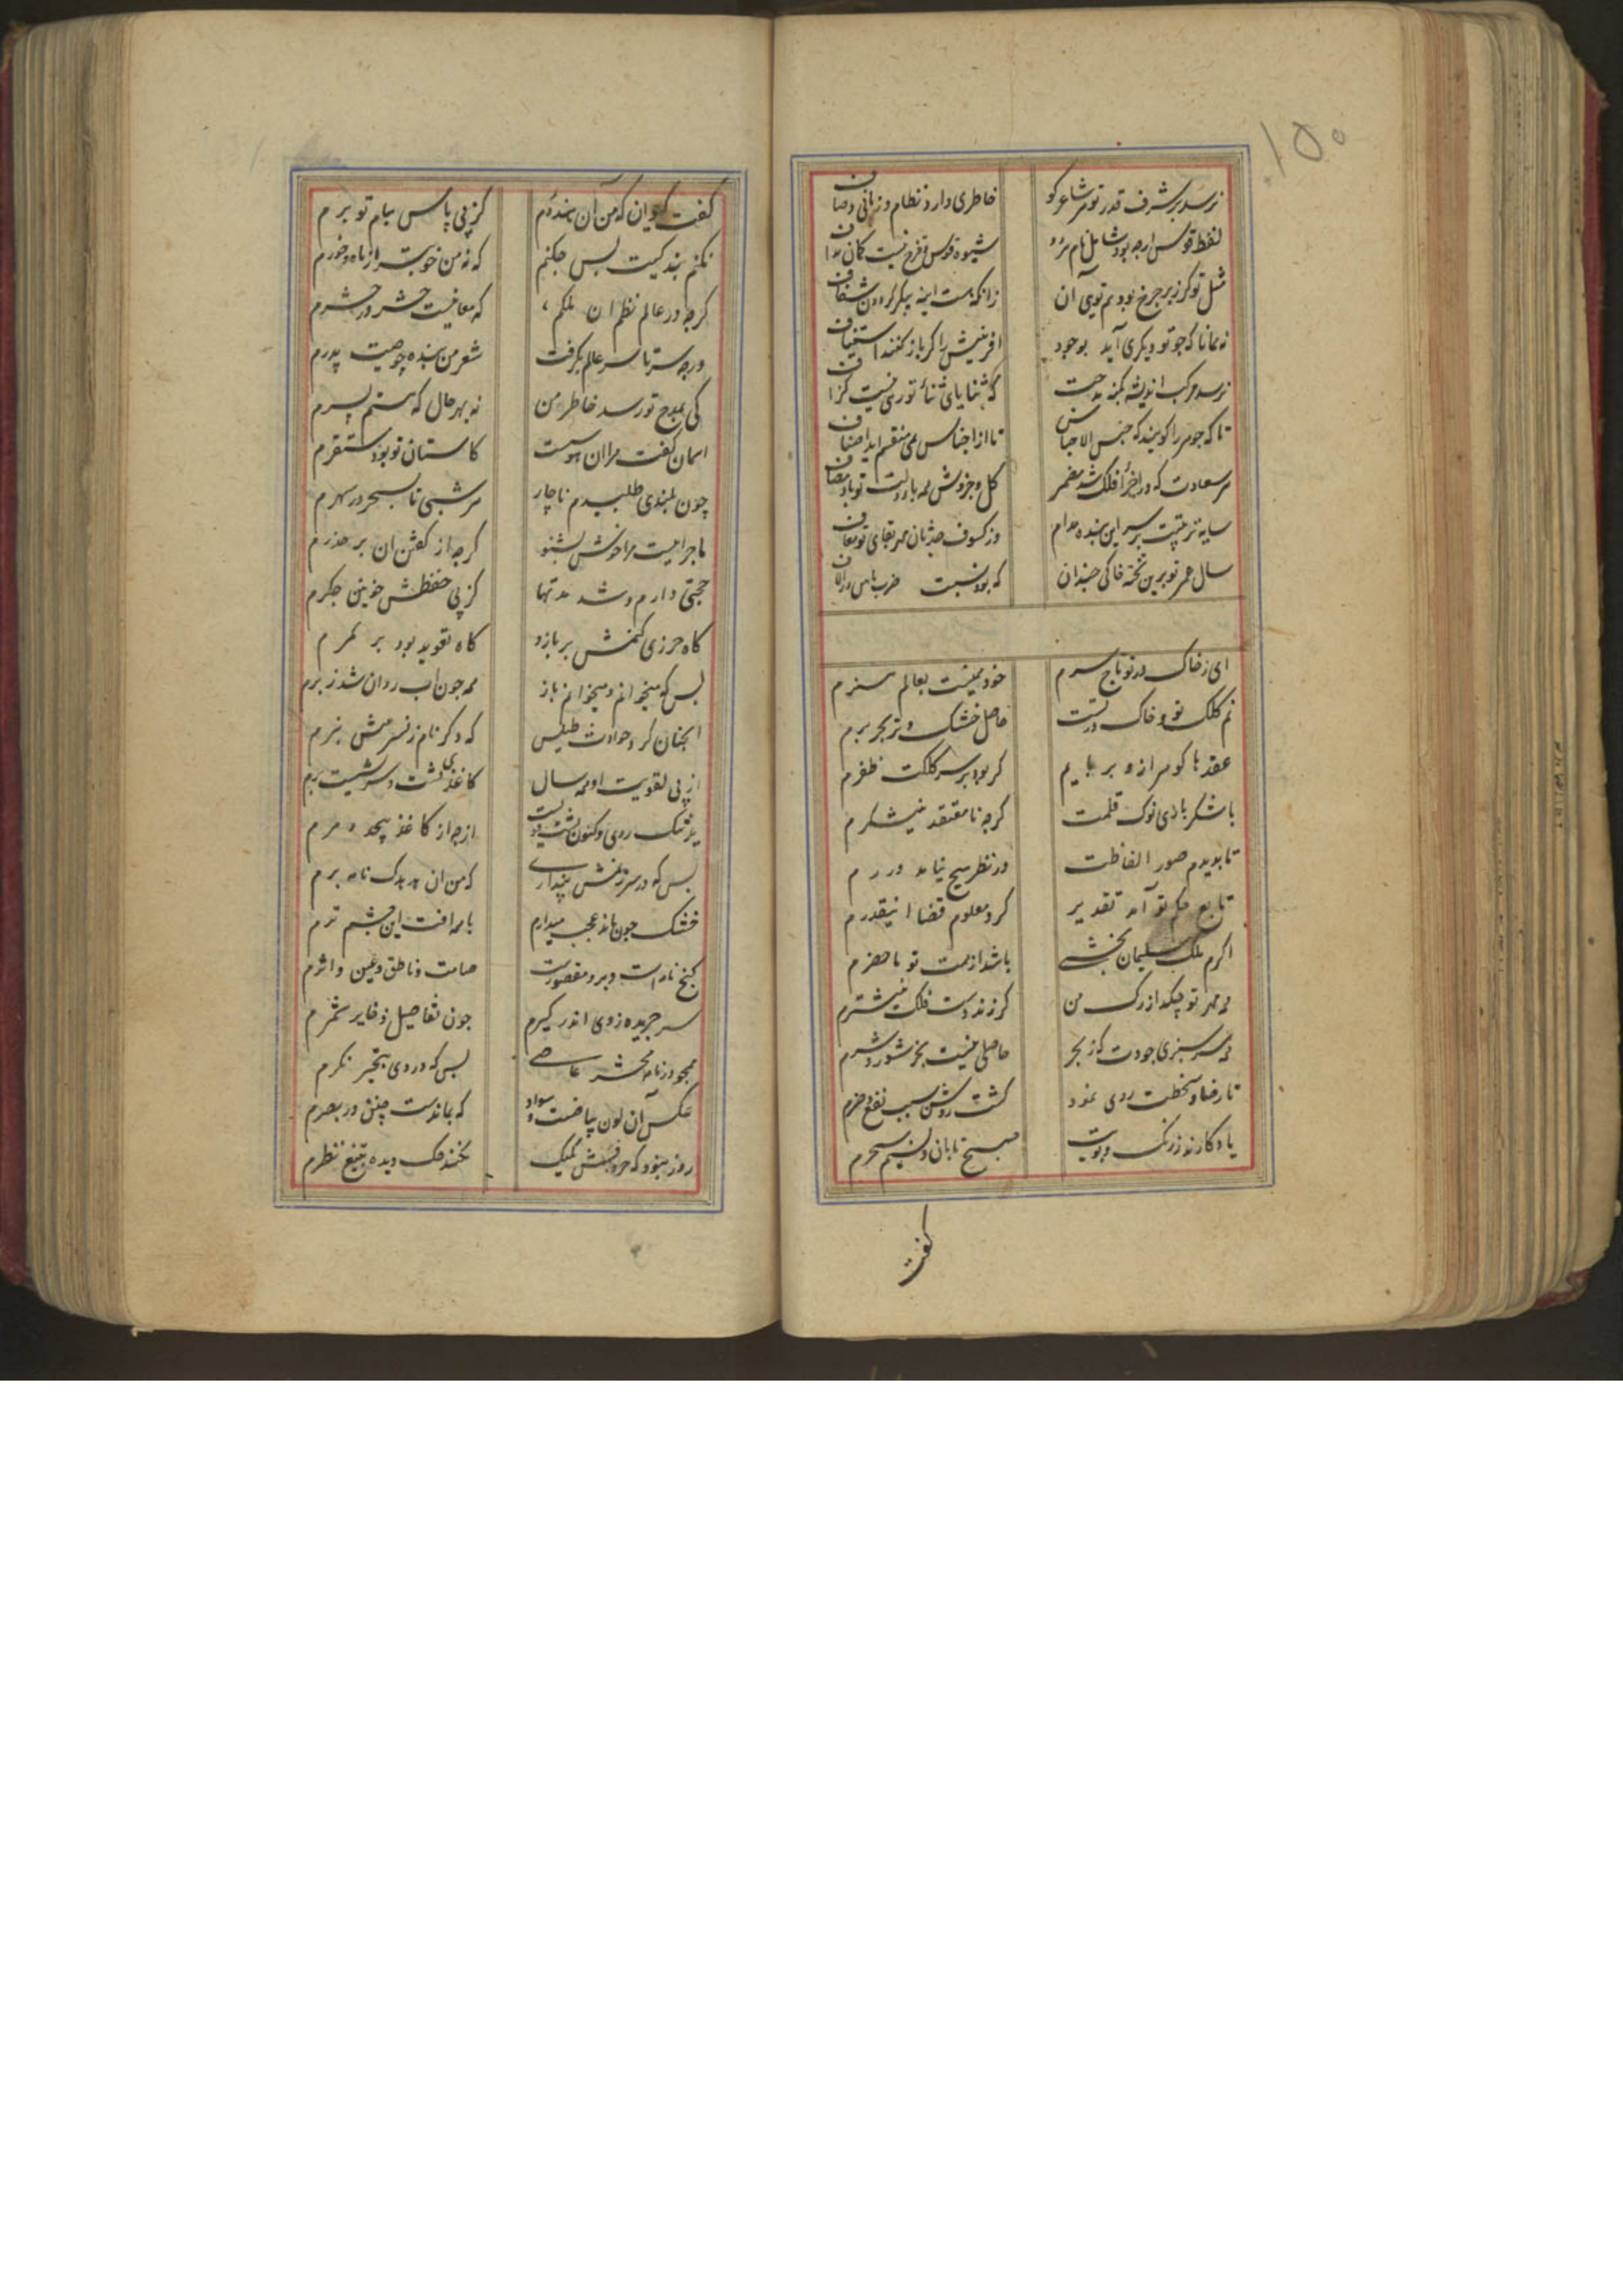 ۱۵۰
نرسد بر شرف قدر تو هر شاعر کو خاطری دارد نظام و زبانی وصاف
لفظ قوس ارچه بود شامل نام هر دو شیوه قوس قزح نیست کمان
مثل تو کر زبر چرخ بود هم توی آن زانکه هست اینه پیکر کردون شفاف
نه همانا که چو تو دیکری آید بوجود افرینش را کر باز کنند استیناف
نرسد مرکب اندیشه بکنه مدحت که ثنایای ثنای تو رهی نیست کزاف
تا که جوهر را کویند که جنس الاجناس تا از اجناس همی منقسم اید اصناف
هر سعادت که در اجزای افلاک شد مضمر کل و جزوش همه با دولت تو باد مضاف
سایه تربیتت بر سر این بنده مدام وز کسوف حدثان مهر بقای تو معاف
سال عمر تو برین تخته خاکی چندان که بود نسبت ضرب
ای ز خاک در تو تاج سرم خود همینست بعالم هنرم
نم کلک تو و خاک در تست حاصل خشک و تر بحر و برم
عقدها کوهر ازو بربایم کر بود بر سر کلکت ظفرم
با شکرباری نوک قلمت کرچه نامعتقد نیشکرم
تا بدیدم صور الفاظت در نظر هیچ نیاید دررم
تابع حکم تو آمد تقدیر کرد معلوم قضا اینقدرم
اکرم ملک سلیمان بخشی باشد از همت تو ماحضرم
همه مهر تو چکد از رک من کر زند دست فلک نیشترم
همه سرسبزی جودت که ز بحر حاصلی نیست بجز شور و شرم
تا رضا و سخطت روی نمود کشت روشن سبب نفع و ضرم
یادکارند ز رنک و بویت صبح تابان و نسیم سحرم
کفت
کفت کیوان که من آن هندوم کز پی پاس ببام تو برم
نکنم بندکیت پس چکنم که نه من خوبتر از ماه و خورم
کرچه در عالم نظم ان ملکم که معانیست حشر در حشرم
ورچه سرتاسر عالم بکرفت شعر من بنده چو صیت پدرم
کی بمدح تو رسد خاطر من نه بهر حال که هستم پسرم
اسمان کفت مرا ان هوسست کاستان تو بود مستقرم
چون بلندی طلبیدم ناچار هر شبی تا بسحر در سهرم
ماجراییست مرا خوش بشنو کرچه از کفتن ان بر حذرم
حجتی دارم و شد مدتها کز پی حفظش خونین جکرم
کاه حرزی کنمش بر بازو کاه تعویذ بود بر کمرم
بس که میخوانم و میخوانم باز همه چون اب روان شد ز برم
انچنان کرد حوادث طیش که دکر نام ز نشرش نبرم
از پی تقویت او همه سال کاغذی بر پشت و سریشیست برم
تنک روی و کنون پشت ازچه از کاغذ پیچد
بس که در سرزنمش پنداری که من ان هدهدک نامه برم
خشک چون ماند عجب میدارم با همه افت این چشم ترم
کنج نامه است و برو مقصورست صامت و ناطق و عین و اثرم
سر جریده ز وی اندر کیرم چون تفاصیل ذخایر شمرم
همچو در نامه محشر عاصی بس که در وی بتحیر نکرم
عکس آن لون بیاضست و سواد که بماندست چنین در بصرم
روز نبود که حروفش یک یک نکند حک دیده بتیغ نظرم